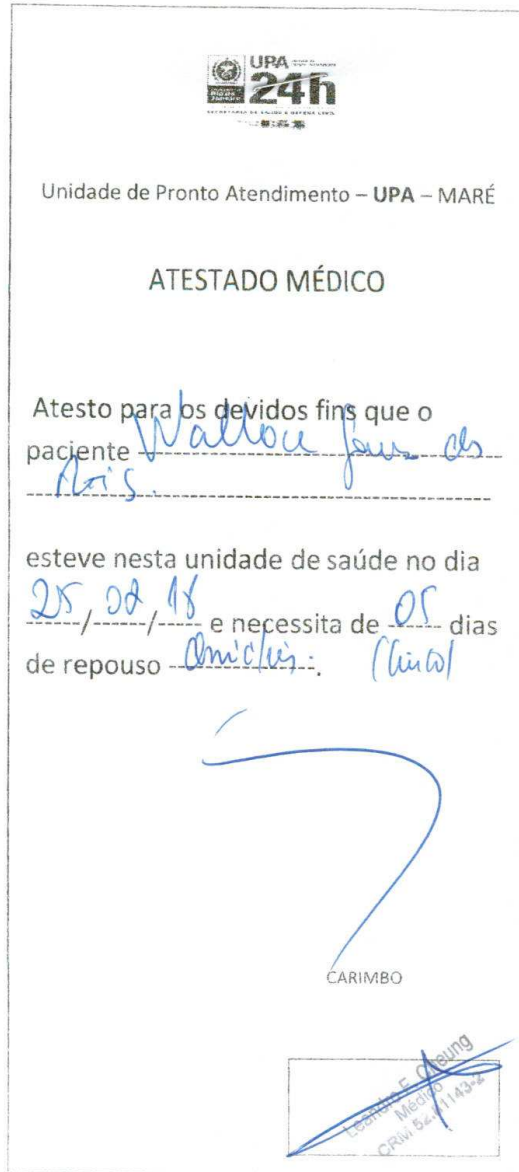 UPA
24h
SECRETARIA DE SAÚDE E DEFESA CIVIL
Unidade de Pronto Atendimento – UPA – MARÉ
ATESTADO MÉDICO
Atesto para os devidos fins que o
paciente Wallace
Reis.
esteve nesta unidade de saúde no dia
25/02/18 e necessita de 05 dias
de repouso (Cinco)
CARIMBO
Leandro F. Cheung
Médico